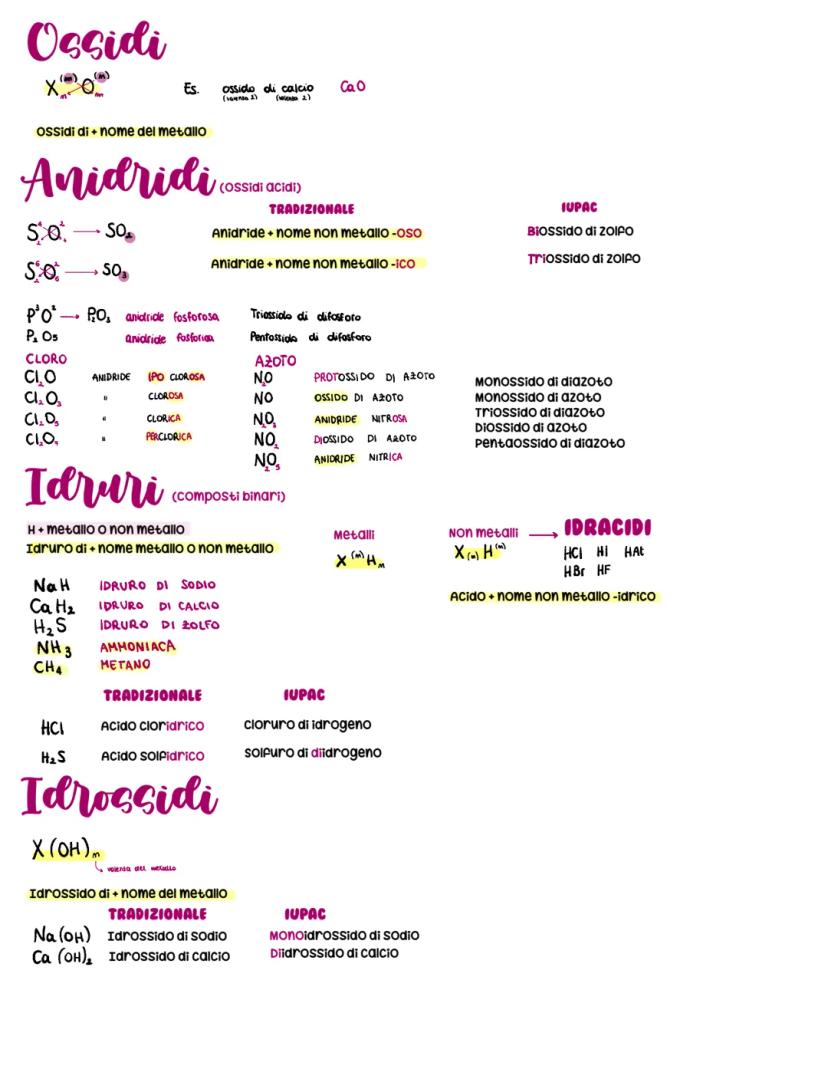 Ossidi
X(m) O(m) m m
Es. ossido di calcio CaO
(valenza 2) (valenza 2)
Ossidi di + nome del metallo
Anidridi (ossidi acidi)
TRADIZIONALE IUPAC
S⁴₂O²₄ → SO₂ Anidride + nome non metallo -oso Biossido di zolfo
S⁶₂O²₆ → SO₃ Anidride + nome non metallo -ico Triossido di zolfo
P³O² → P₂O₃ anidride fosforosa Triossido di difosforo
P₂O₅ anidride fosforica Pentossido di difosforo
CLORO AZOTO
Cl₂O ANIDRIDE IPO CLOROSA N₂O PROTOSSIDO DI AZOTO Monossido di diazoto
Cl₂O₃ " CLOROSA NO OSSIDO DI AZOTO Monossido di azoto
Cl₂O₅ " CLORICA N₂O₃ ANIDRIDE NITROSA Triossido di diazoto
Cl₂O₇ " PERCLORICA NO₂ DIOSSIDO DI AZOTO Diossido di azoto
N₂O₅ ANIDRIDE NITRICA Pentaossido di diazoto
Idruri (composti binari)
H + metallo o non metallo
Idruro di + nome metallo o non metallo
Metalli
X(m)Hm
Non metalli → IDRACIDI
X(m)H(m) HCl HI HAt
HBr HF
Acido + nome non metallo -idrico
NaH IDRURO DI SODIO
CaH₂ IDRURO DI CALCIO
H₂S IDRURO DI ZOLFO
NH₃ AMMONIACA
CH₄ METANO
TRADIZIONALE IUPAC
HCl Acido cloridrico cloruro di idrogeno
H₂S Acido solfidrico solfuro di diidrogeno
Idrossidi
X(OH)m
valenza del metallo
Idrossido di + nome del metallo
TRADIZIONALE IUPAC
Na(OH) Idrossido di sodio Monoidrossido di sodio
Ca(OH)₂ Idrossido di calcio Diidrossido di calcio